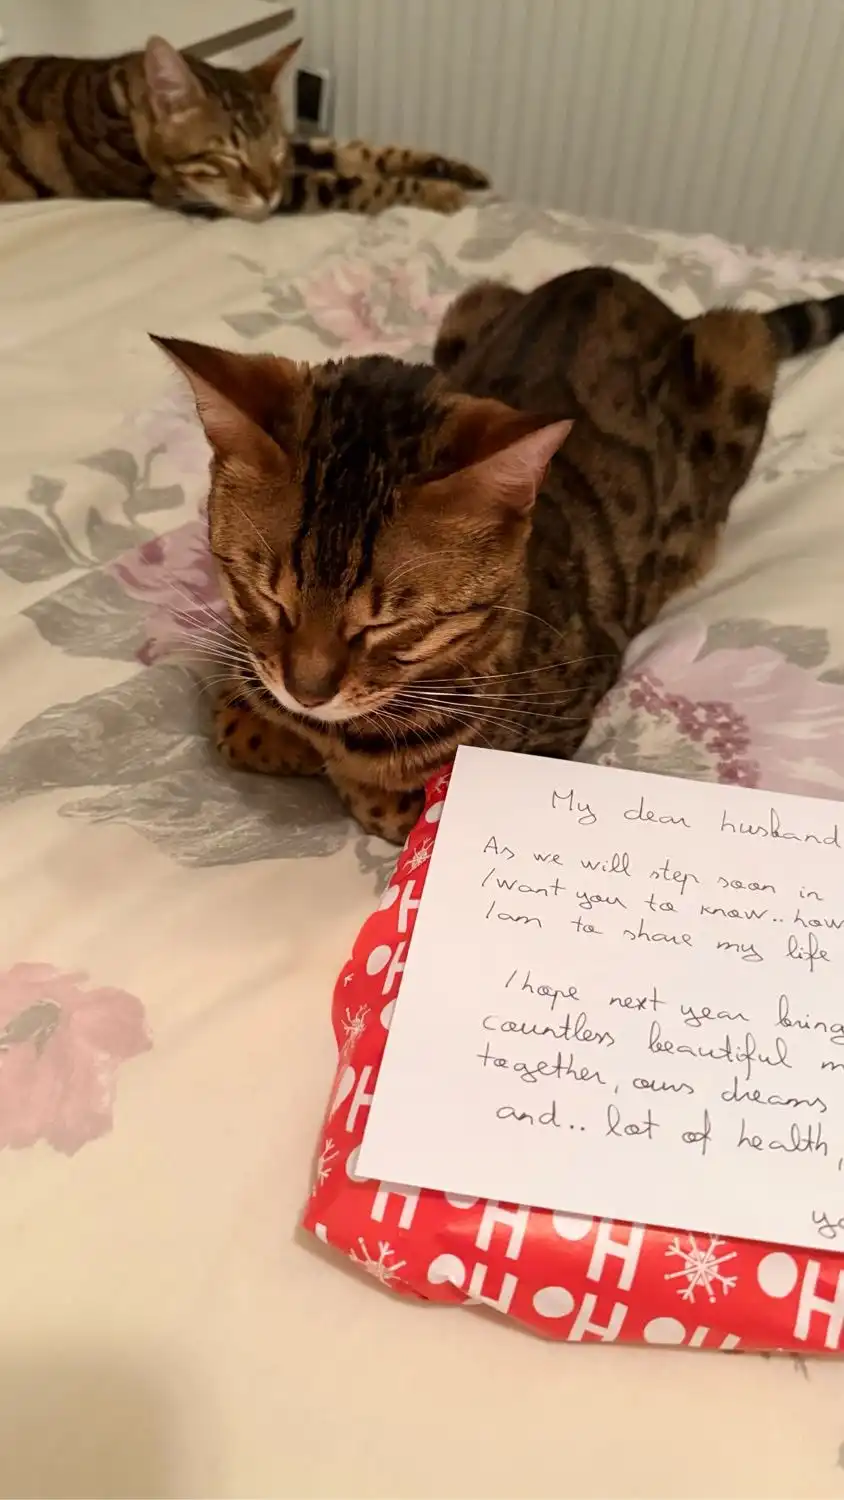 My dear husband
As we will step soon in
I want you to know.. how
I am to share my life
I hope next year bring
countless beautiful m
together, ours dreams
and.. lot of health,
yo
HO
HO
HO
HOHO
HOHO
HOHOHO
HOHOHO